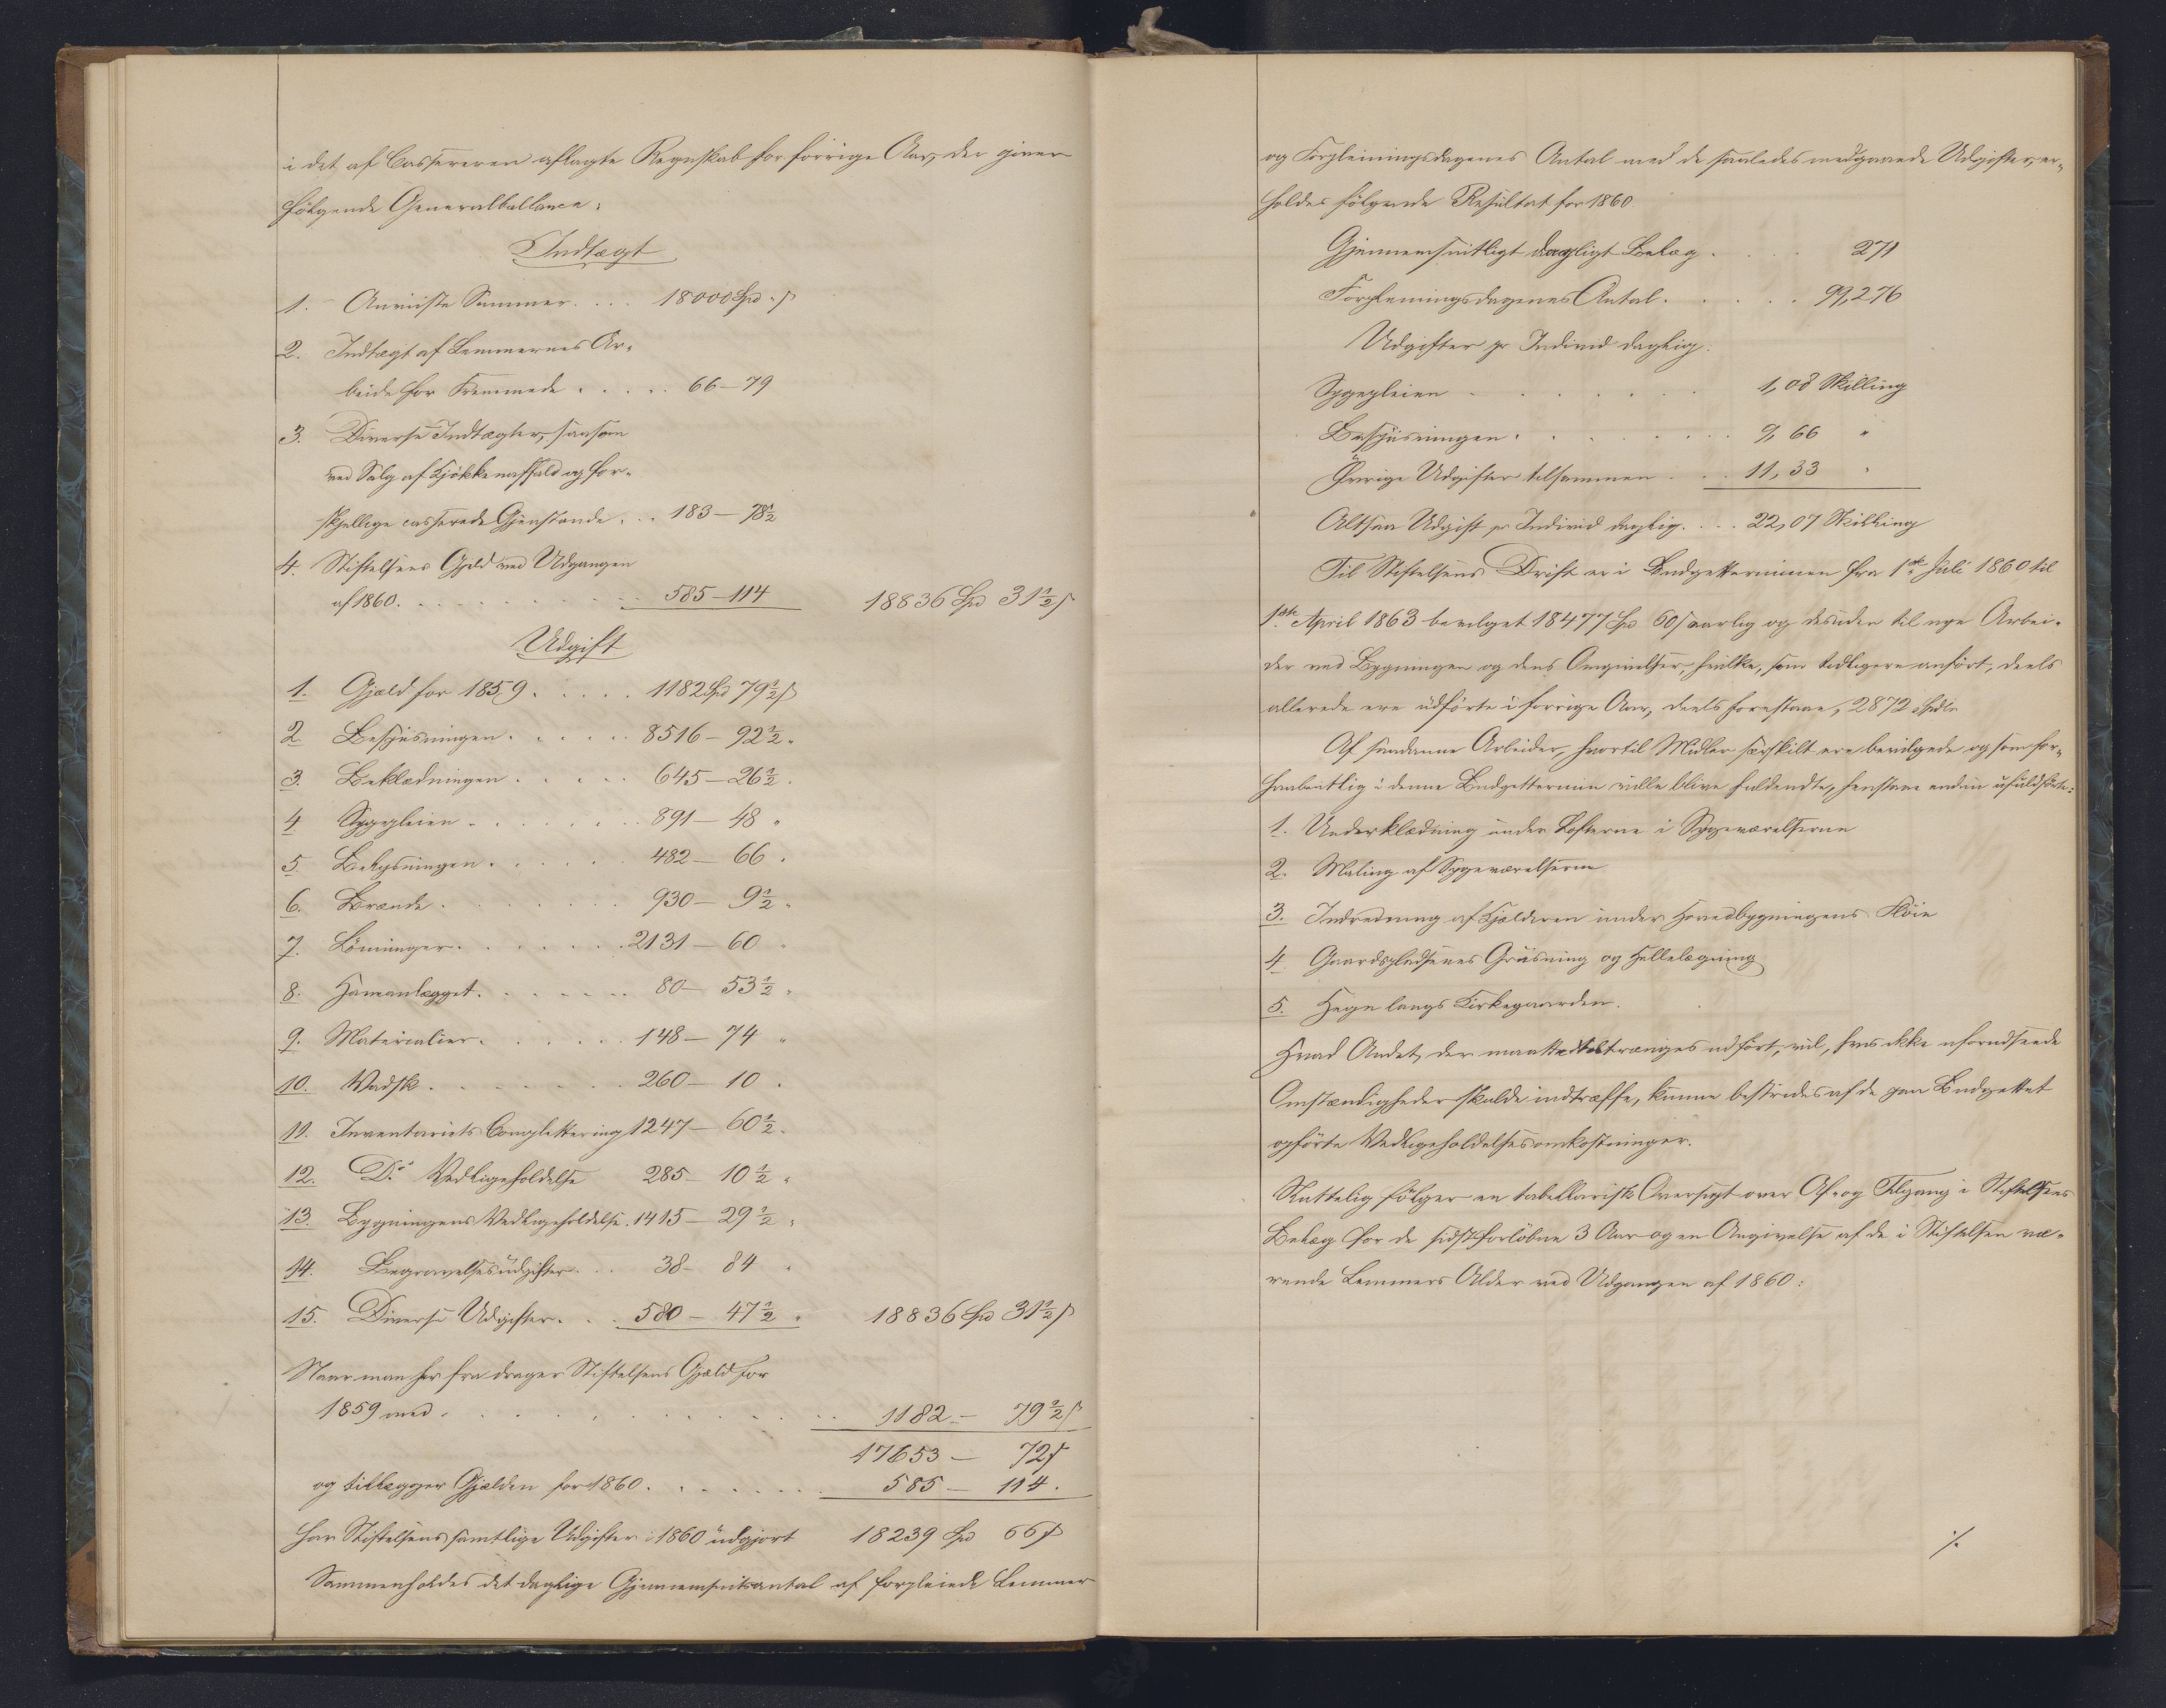 i det af Cassereren aflagte Regnskab for forrige Aar, der giver
følgende Generalballance:
Indtægt
1. Anviiste Summer. . . . 18000 Spd. " ß
2. Indtægt af Lemmernes Ar-
beide for Fremmede . . . . . 66 – 79
3. Diverse Indtægter, saasom
ved Salg af Kjøkkenaffald og for-
skjellige casserede Gjenstande. . . 183 – 78½
4. Stiftelsens Gjæld ved Udgangen
af 1860. . . . . . . . . 585 – 114 18836 Spd 31½ ß
Udgift
1. Gjæld for 1859. . . . . 1182 Spd 79½ ß
2. Bespiisningen. . . . . . 8516 – 92½ "
3. Beklædningen. . . . . . 645 – 26½ "
4 Sygepleien . . . . . . . 891 – 48 "
5. Belysningen. . . . . . 482 – 66 "
6. Brænde . . . . . . . 930 – 9½ "
7. Lønninger. . . . . . . 2131 – 60 "
8. Haveanlægget. . . . . . 80 – 53½ "
9. Materialier. . . . . . 148 – 74 "
10. Vadsk. . . . . . . 260 – 10 "
11. Inventariets Complettering 1247 – 60½ "
12. Do Vedligeholdelse 285 – 10½ "
13. Bygningens Vedligeholdelse. 1415 – 29½ "
14. Begravelsesudgifter. . . 38 – 84 "
15. Diverse Udgifter. . . 580 – 47½ " 18836 Spd 31½ ß
Naar man her fra drager Stiftelsens Gjæld for
1859 med . . . . . . . . . . 1182 – 79½ ß
17653 – 72 ß
og tillægger Gjælden for 1860. . . . . . . 585 – 114.
har Stiftelsens samtlige Udgifter i 1860 udgjort 18239 Spd 66 ß
Sammenholdes det daglige Gjennemsnitsantal af forpleiede Lemmer
og Forpleiningsdagenes Antal med de saaledes medgaaede Udgifter, er-
holdes følgende Resultat for 1860
Gjennemsnitligt dagligt Belæg . . . . 271
Forpleiningsdagenes Antal. . . . . . 99,276
Udgifter pr Individ daglig:
Sygepleien . . . . . . . 1,08 Skilling
Bespiisningen. . . . . . . . 9,66 "
Øvrige Udgifter tilsammen . . . 11,33 "
Altsaa Udgift pr Individ daglig. . . . 22,07 Skilling
Til Stiftelsens Drift er i Budgetterminen fra 1ste Juli 1860 til
1ste April 1863 bevilget 18477 Spd 60 ß aarlig og desuden til nye Arbei-
der ved Bygningen og dens Omgivelser, hvilke, som tidligere anført, deels
allerede ere udførte i forrige Aar, deels forestaae, 2872 Spdlr
Af saadanne Arbeider, hvortil Midler særskilt ere bevilgede og som for-
haabentlig i denne Budgettermin ville blive fuldendte, henstaae endnu ufuldførte:
1. Underklædning under Lofterne i Sygeværelserne
2. Maling af Sygeværelserne
3. Indredning af Kjælderen under Hovedbygningens Fløie
4 Gaardspladsenes Gruusning og Hellelægning
5. Hegn langs Kirkegaarden.
Hvad Andet, der maatte tiltrænges udført, vil, hvis ikke uforudseede
Omstændigheder skulde indtræffe, kunne bestrides af de paa Budgettet
opførte Vedligeholdelsesomkostninger.
Sluttelig følger en tabellarisk Oversigt over Af- og Tilgang i Stiftelsens
Belæg for de sidstforløbne 3 Aar og en Angivelse af de i Stiftelsen væ-
rende Lemmers Alder ved Udgangen af 1860:
./.